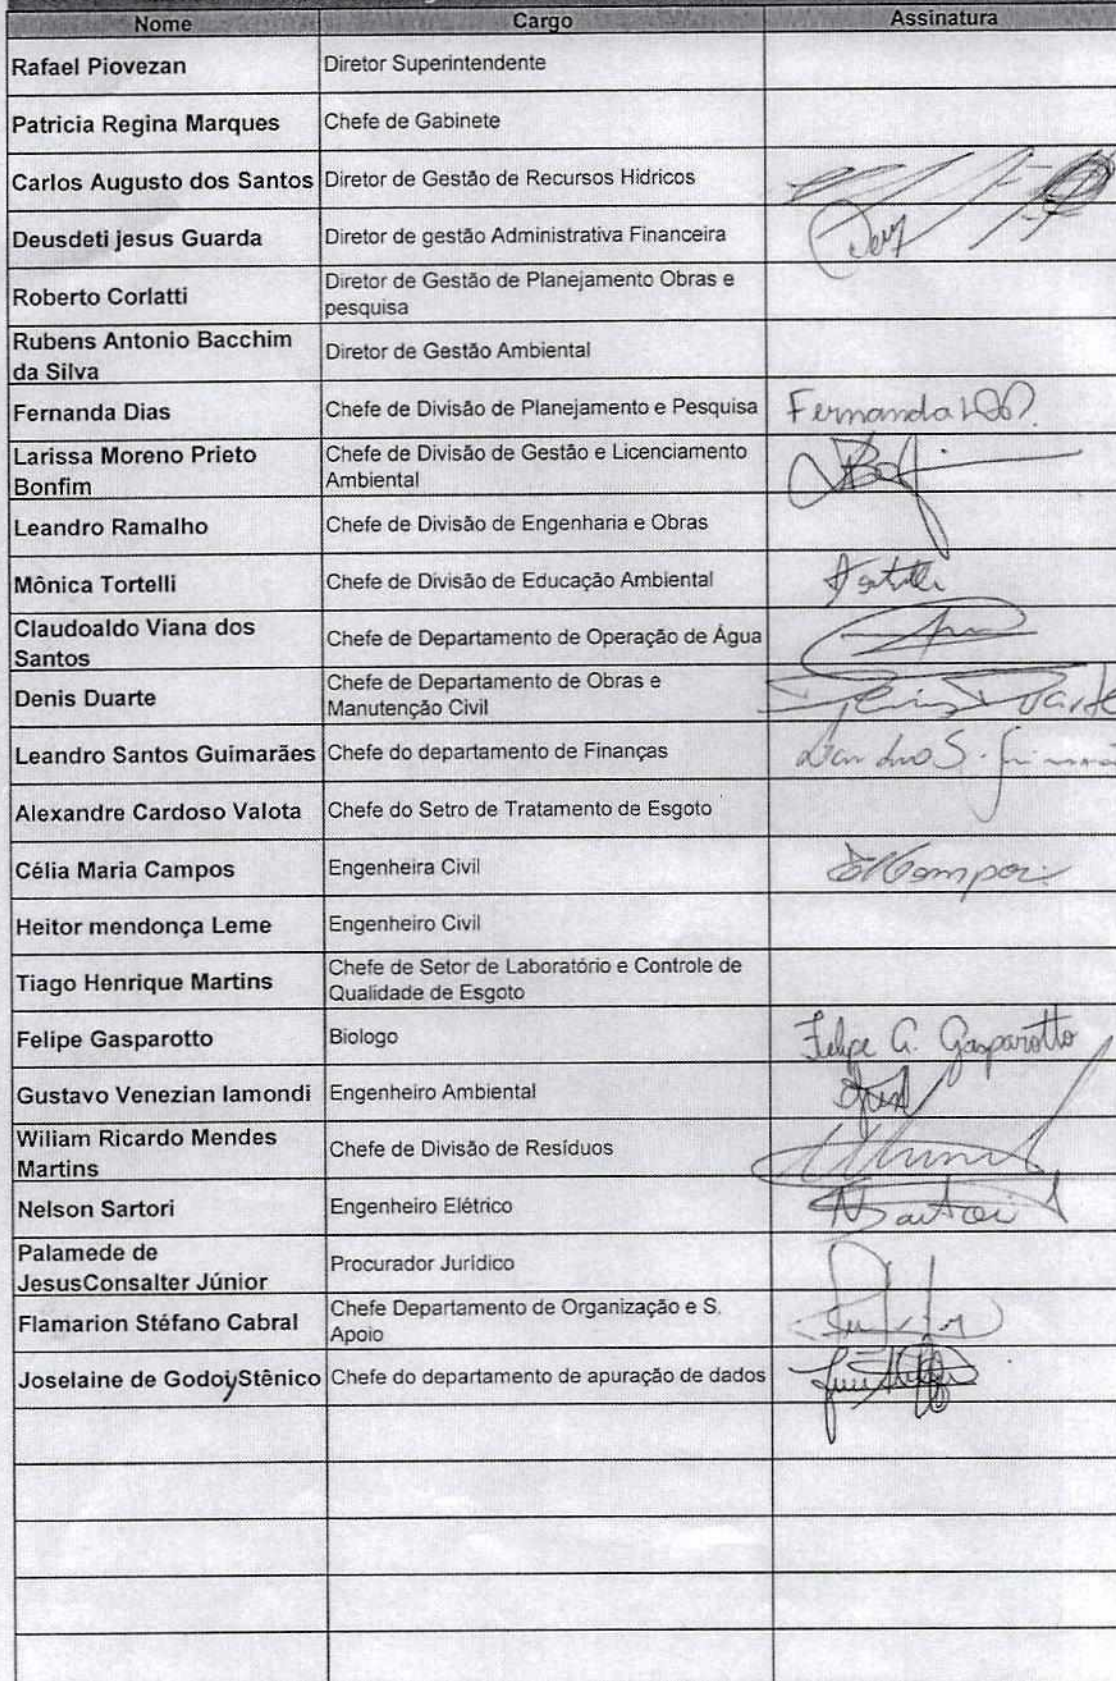 Nome Cargo Assinatura
Rafael Piovezan Diretor Superintendente
Patricia Regina Marques Chefe de Gabinete
Carlos Augusto dos Santos Diretor de Gestão de Recursos Hidricos
Deusdeti jesus Guarda Diretor de gestão Administrativa Financeira
Roberto Corlatti Diretor de Gestão de Planejamento Obras e
pesquisa
Rubens Antonio Bacchim
da Silva Diretor de Gestão Ambiental
Fernanda Dias Chefe de Divisão de Planejamento e Pesquisa Fernanda
Larissa Moreno Prieto
Bonfim Chefe de Divisão de Gestão e Licenciamento
Ambiental
Leandro Ramalho Chefe de Divisão de Engenharia e Obras
Mônica Tortelli Chefe de Divisão de Educação Ambiental
Claudoaldo Viana dos
Santos Chefe de Departamento de Operação de Água
Denis Duarte Chefe de Departamento de Obras e
Manutenção Civil Denis Duarte
Leandro Santos Guimarães Chefe do departamento de Finanças Leandro S.
Alexandre Cardoso Valota Chefe do Setro de Tratamento de Esgoto
Célia Maria Campos Engenheira Civil
Heitor mendonça Leme Engenheiro Civil
Tiago Henrique Martins Chefe de Setor de Laboratório e Controle de
Qualidade de Esgoto
Felipe Gasparotto Biologo Felipe G. Gasparotto
Gustavo Venezian Iamondi Engenheiro Ambiental
Wiliam Ricardo Mendes
Martins Chefe de Divisão de Resíduos
Nelson Sartori Engenheiro Elétrico N Sartori
Palamede de
JesusConsalter Júnior Procurador Jurídico
Flamarion Stéfano Cabral Chefe Departamento de Organização e S.
Apoio
Joselaine de Godoy Stênico Chefe do departamento de apuração de dados